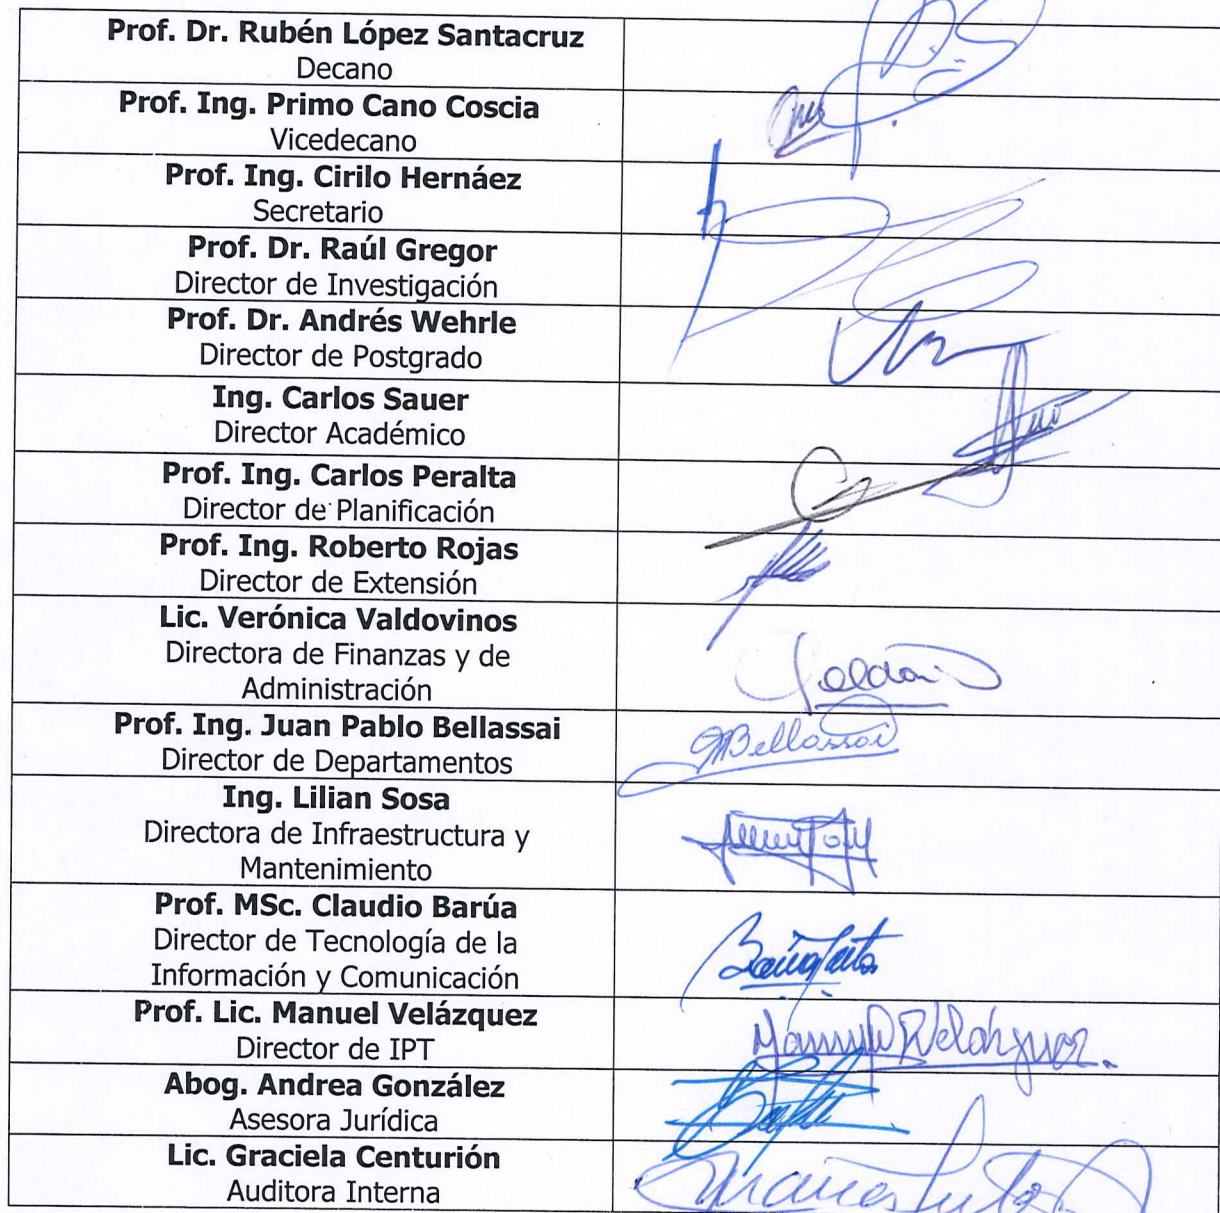 Prof. Dr. Rubén López Santacruz
Decano
Prof. Ing. Primo Cano Coscia
Vicedecano
Prof. Ing. Cirilo Hernáez
Secretario
Prof. Dr. Raúl Gregor
Director de Investigación
Prof. Dr. Andrés Wehrle
Director de Postgrado
Ing. Carlos Sauer
Director Académico
Prof. Ing. Carlos Peralta
Director de Planificación
Prof. Ing. Roberto Rojas
Director de Extensión
Lic. Verónica Valdovinos
Directora de Finanzas y de
Administración
Prof. Ing. Juan Pablo Bellassai
Director de Departamentos
Bellassai
Ing. Lilian Sosa
Directora de Infraestructura y
Mantenimiento
Prof. MSc. Claudio Barúa
Director de Tecnología de la
Información y Comunicación
Prof. Lic. Manuel Velázquez
Director de IPT
Manuel Velázquez.
Abog. Andrea González
Asesora Jurídica
Lic. Graciela Centurión
Auditora Interna